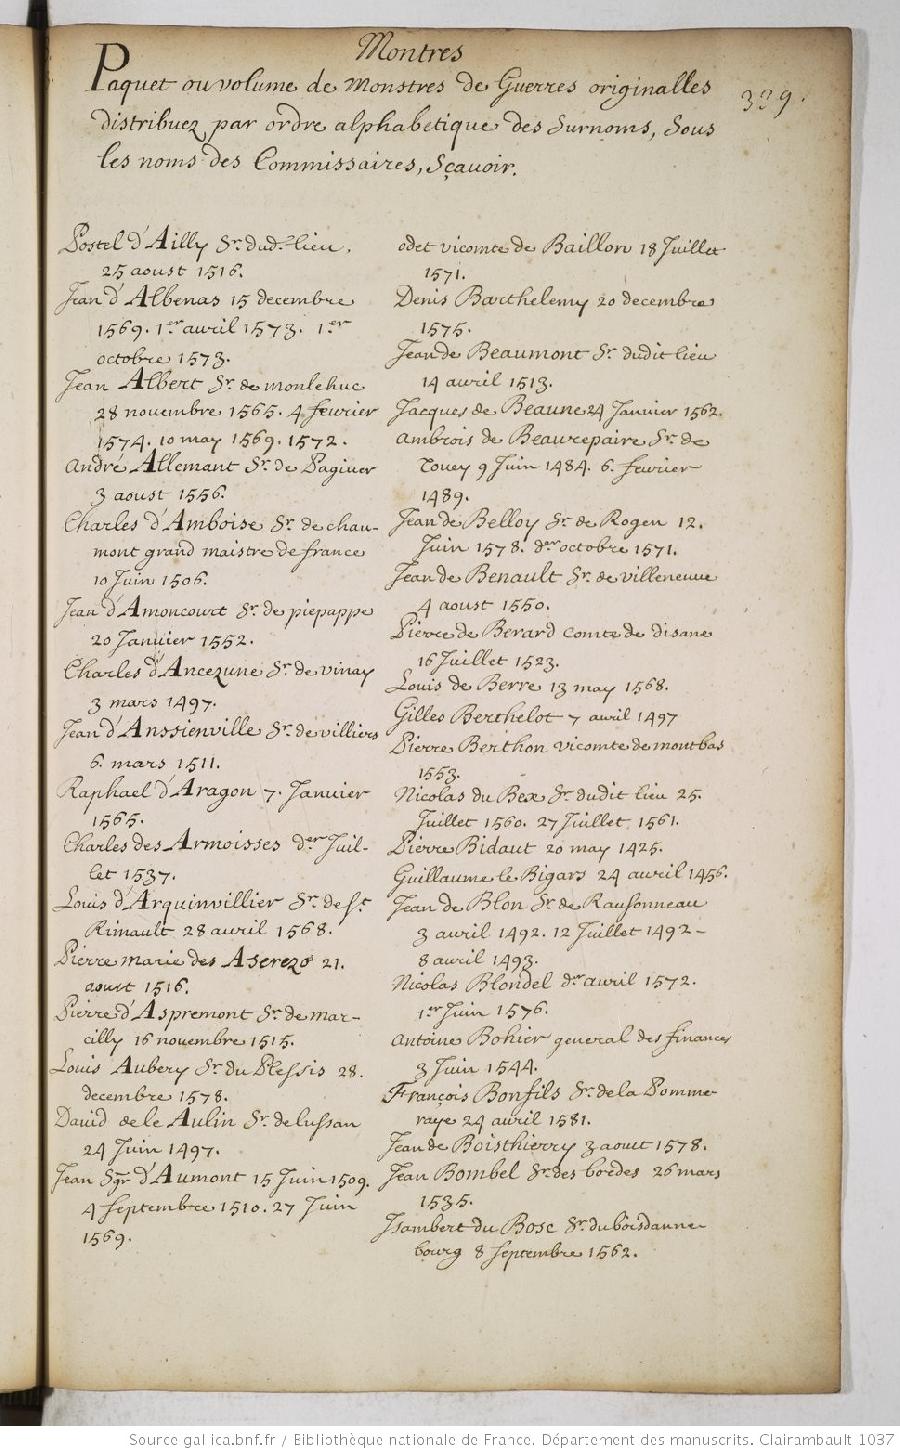 Montres
Paquet ou volume de Monstres de Guerres originalles
339.
distribuez par ordre alphabetique des surnoms, sous
les noms des Commissaires, sçavoir.
Postel d'Ailly Sr. dud. lieu.
25 aoust 1516.
Jean d'Albenas 15 decembre
1569. 1er avril 1573. 1er
octobre 1573.
Jean Albert Sr. de montehuc
28 novembre 1565. 4 fevrier
1574. 10 may 1569. 1572.
André Allemant Sr. de Pagiuer
3 aoust 1556.
Charles d'Amboise Sr. de chau-
mont grand maistre de france
10 Juin 1506.
Jean d'Amoncourt Sr. de piepappe
20 Januier 1552.
Charles d'Ancezune Sr. de vinay
3 mars 1497.
Jean d'Anssienville Sr. de villiers
6. mars 1511.
Raphael d'Aragon 7. Januier
1565.
Charles des Armoisses der Juil-
let 1537.
Louis d'Arquinvillier Sr. de St.
Rimault 28 auril 1568.
Pierre marie des Aserezo 21.
aoust 1516.
Pierre d'Aspremont Sr. de mar-
cilly 16 novembre 1515.
Louis Aubery Sr. du Plessis 28.
decembre 1578.
David de le Aulin Sr. de lussan
24 Juin 1497.
Jean Sgr. d'Aumont 15 Juin 1509.
4 septembre 1510. 27 Juin
1569.
odet vicomte de Baillon 18 Juillet
1571.
Denis Barthelemy 20 decembre
1575.
Jean de Beaumont Sr. dudit lieu
14 auril 1513.
Jacques de Beaune 24 Januier 1562.
ambrois de Beaurepaire Sr. de
Touey 9 Juin 1484. 6. fevrier
1489.
Jean de Belloy Sr. de Rogen 12.
Juin 1578. der octobre 1571.
Jean de Benault Sr. de villeneuue
4 aoust 1550.
Pierre de Berard comte de disane
16 Juillet 1523.
Louis de Berre 13 may 1568.
Gilles Berthelot 7 auril 1497
Pierre Berthon vicomte de montbas
1553.
Nicolas du Bex Sr. dudit lieu 25.
Juillet 1560. 27 Juillet 1561.
Pierre Bidaut 20 may 1425.
Guillaume le Bigars 24 auril 1456.
Jean de Blon Sr. de Rausonneau
3 auril 1492. 12 Juillet 1492-
8 auril 1493.
Nicolas Blondel der auril 1572.
1er Juin 1576.
antoine Bohier general des finances
3 Juin 1544.
François Bonfils Sr. de la Pomme
raye 24 auril 1581.
Jean de Boisthierry 3 aout 1578.
Jean Bombel Sr. des bordes 26 mars
1535.
Isambert du Bosc Sr. du boisdanne
bourg 8 septembre 1562.
Source gallica.bnf.fr / Bibliothèque nationale de France. Département des manuscrits. Clairambault 1037